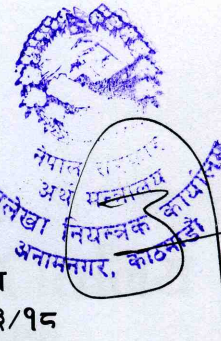 नेपाल सरकार
अर्थ मन्त्रालय
लेखा नियन्त्रक कार्यालय
अनामनगर, काठमाडौं
३/१८